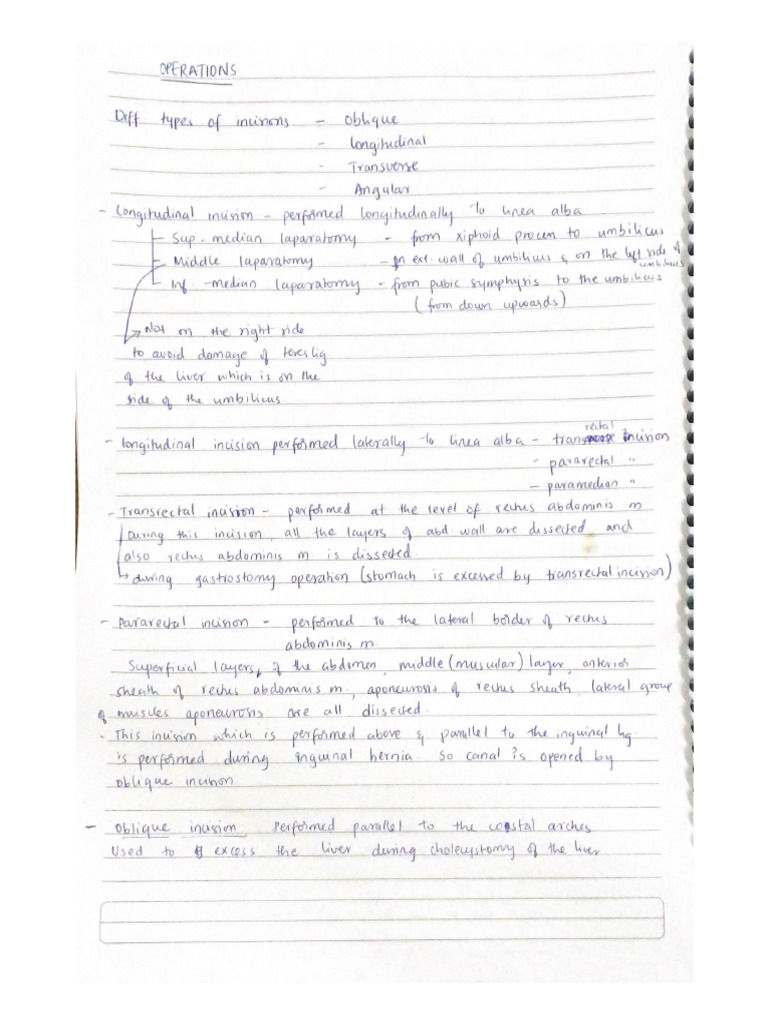 OPERATIONS
Diff types of incisions - Oblique
- Longitudinal
- Transverse
- Angular
- Longitudinal incision - performed longitudinally to linea alba
Sup-median laparatomy - from xiphoid process to umbilicus
Middle laparatomy - on ext. wall of umbilicus & on the left side of umbilicus
Inf -median laparatomy - from pubic symphysis to the umbilicus
(from down upwards)
Not on the right side
to avoid damage of teres lig
of the liver which is on the
side of the umbilicus
- longitudinal incision performed laterally to linea alba - transrectal incision
- pararectal "
- paramedian "
- Transrectal incision - performed at the level of rectus abdominis m
During this incision, all the layers of abd wall are dissected and
also rectus abdominis m. is dissected
during gastrostomy operation (stomach is excessed by transrectal incision)
- Pararectal incision - performed to the lateral border of rectus
abdominis m.
Superficial layers, of the abdomen, middle (muscular) layer, anterior
sheath of rectus abdominus m, aponeurosis of rectus sheath, lateral group
of muscles aponeurosis are all dissected.
- This incision which is performed above & parallel to the inguinal lig.
is performed during inguinal hernia. So canal is opened by
oblique incision
- Oblique incision Performed parallel to the costal arches
Used to excess the liver during cholecystomy of the liver